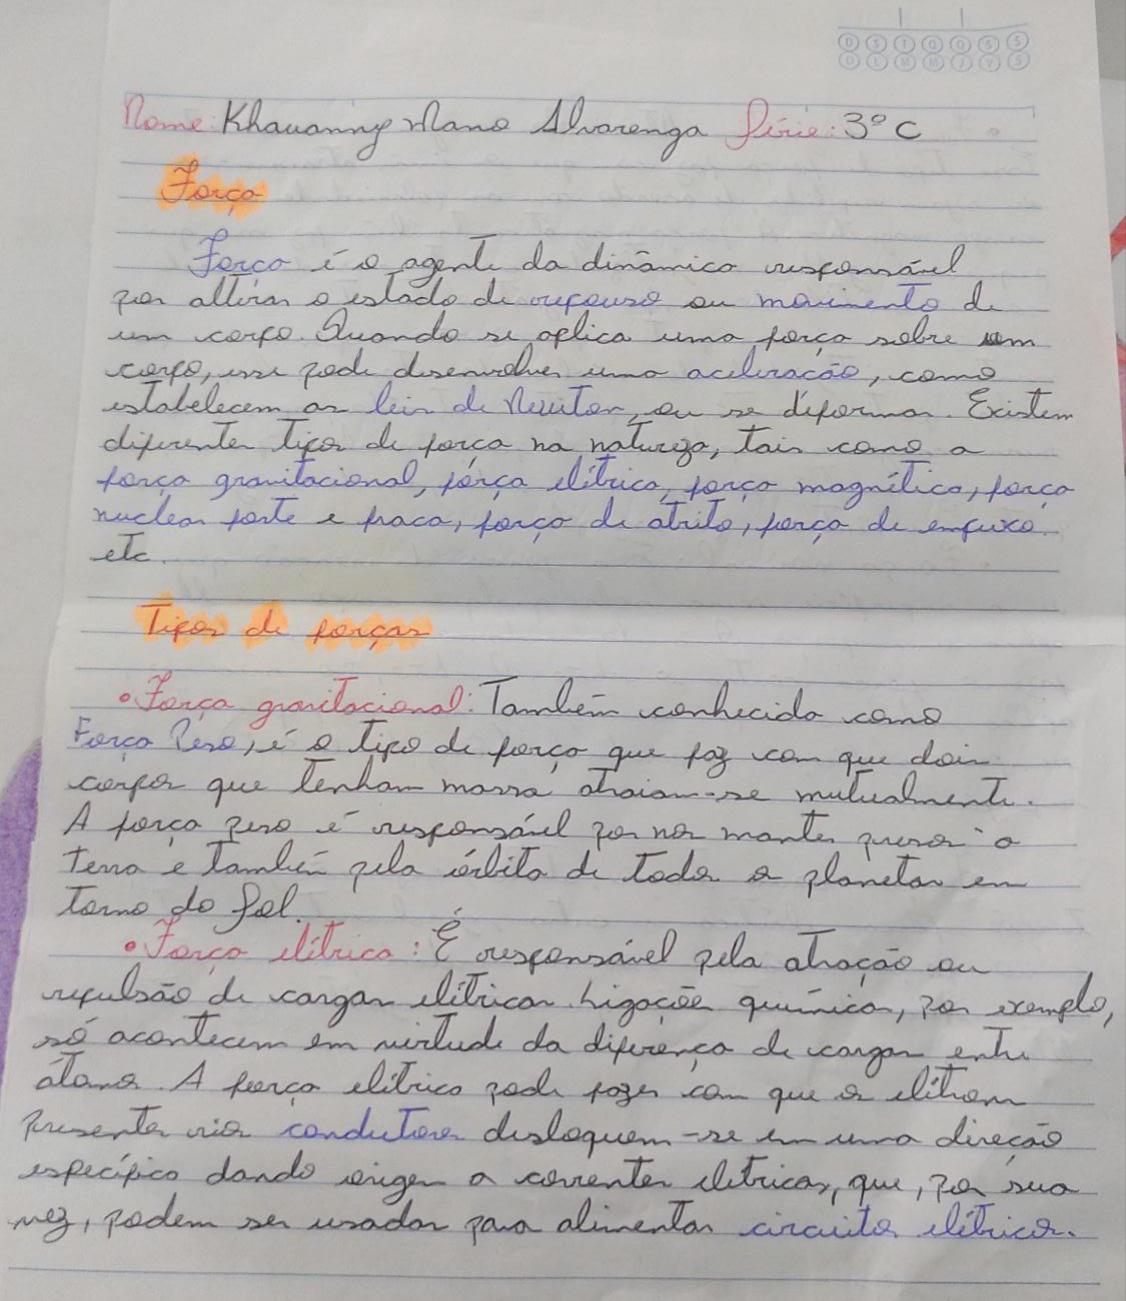 D S T Q Q S S
D L M M J V S
Nome: Khauanny Mano Alvarenga Série: 3º C
Força
Força é o agente da dinâmica responsável
por alterar o estado de repouso ou movimento de
um corpo. Quando se aplica uma força sobre um
corpo, esse pode desenvolver uma aceleração, como
estabelecem as leis de Newton, ou se deformar. Existem
diferentes tipos de força na natureza, tais como a
força gravitacional, força elétrica, força magnética, força
nuclear forte e fraca, força de atrito, força de empuxo
etc.
Tipos de forças
• Força gravitacional: Também conhecida como
Força Peso, é o tipo de força que faz com que dois
corpos que tenham massa atraiam-se mutualmente.
A força peso é responsável por nos manter presos à
terra e também pela órbita de todos os planetas em
torno do Sol.
• Força elétrica: É responsável pela atração ou
repulsão de cargas elétricas. Ligações químicas, por exemplo,
só acontecem em virtude da diferença de cargas entre
átomos. A força elétrica pode fazer com que os elétrons
presentes nos condutores desloquem-se em uma direção
específica dando origem a correntes elétricas, que, por sua
vez, podem ser usados para alimentar circuitos elétricos.